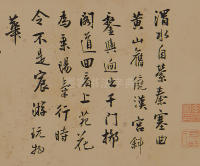 渭水自縈秦塞曲
黃山舊繞漢宮斜
鑾輿迥出千門柳
閣道回看上苑花
為乘陽氣行時
令不是宸游玩物
華